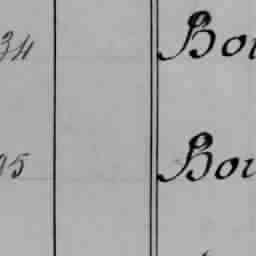 34 Bou
05 Bou